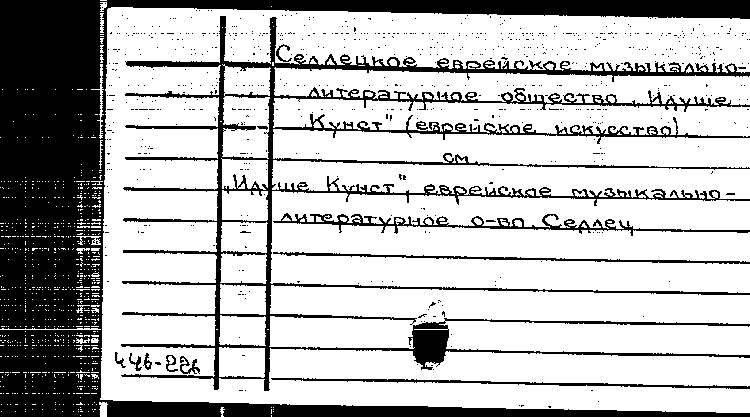 Седлецкое еврейское музыкально-
литературное общество „Идуше
Кунст" (еврейское искусство).
см.
„Идуше Кунст", еврейское музыкально-
литературное о-во. Седлец
446-226